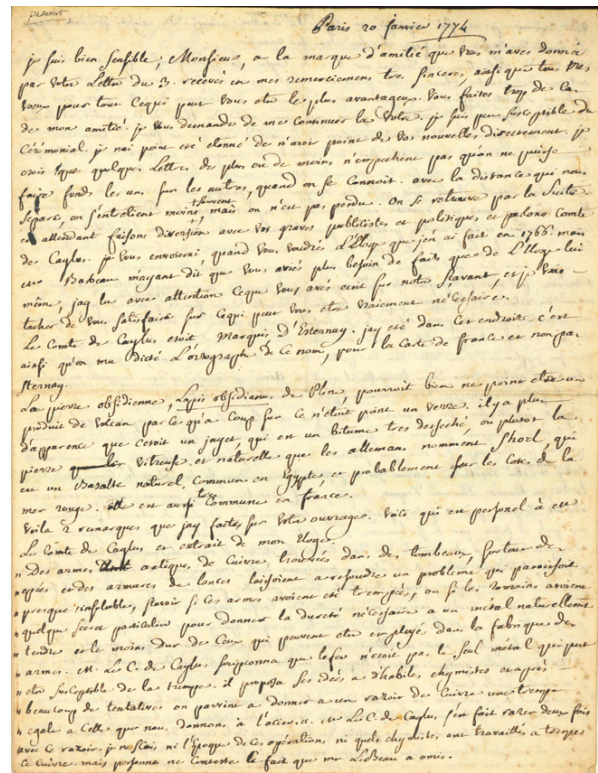 Paris 20 janvier 1774
je suis bien sensible, Monsieur, a la marque d'amitié que vous m'avés donnée
par votre Lettre du 3. recevés en mes remerciemens tres sinceres, ainsi que tous mes
vœux pour tout ce qui peut vous etre le plus avantageux. Vous faites trop de cas
de mon amitié. je vous demande de me continuer la votre. je suis peu susceptible du
Cérémonial. je nai point eté étonné de n'avoir point de vos nouvelles directement. je
crois que quelques Lettres de plus ou de moins n'empechent pas qu'on ne puisse
faire fonds les uns sur les autres, quand on se connoit. avec la distance qui nous
separe, on s'entretient moins souvent, mais on n'est pas perdu. On se retrouve par la suite
en attendant faisons diversion avec vos graves publicistes et politiques, et parlons Comte
de Caylus. je vous envoierai, quand vous voudrés l'Eloge que j'en ai fait en 1766. mais
Mr Babeau mayant dit que vous aviés plus besoin de faits que de l'Eloge lui
même, jay lu avec attention Ceque vous avés ecrit sur notre sçavant, et je vais
tacher de vous satisfaire sur Cequi peut vous etre vraiment nécessaire.
Le Comte de Caylus etoit Marquis d'Esternay. jay eté dans Cet endroit. c'est
ainsi qu'on ma dicté L'orthographe de Ce nom, pour la Carte de france et non pas
Sternay.
La pierre obsidienne, Lapis obsidianus de Pline, pourroit bien ne point etre un
produit de volcan par ce qu'a Coup sur Ce n'etoit point un verre. il y a plus
d'apparence que c'etoit un jayet, qui est un bitume tres desseché, ou plutot la
pierre vitreuse et naturelle que les allemans nomment Shorl, qui
est un Basalte naturel Commun en Egypte et probablement sur les Cotes de la
mer rouge. Elle est aussi tres Commune en france.
Voila 2 remarques que jay faites sur votre ouvrage. Voici qui est personel à Mr
Le Comte de Caylus et extrait de mon Eloge.
" Des armes antiques de Cuivre, trouvées dans des tombeaux, surtout des
" epées et des armures de lances laissoient a resoudre un problème qui paroissoit
" presque insoluble, sçavoir si Ces armes avoient eté trempées, ou si les Romains avoient
" quelque secret particulier pour donner la dureté nécessaire a un metal naturellement
" tendre et le moins dur de Ceux qui peuvent etre employé dans la fabrique des
" armes. M. Le C. de Caylus soupçonna que le fer n'etoit pas le seul metal qui peut
" etre susceptible de la trempe. il proposa ses idées a d'habiles chymistes et après
" beaucoup de tentatives on parvint a donner a un razoir de Cuivre une trempe
" egale a Celle que nous donnons à l'acier. Mr Le C. de Caylus s'en fait razer deux fois
avec Ce razoir. je ne sçais ni l'Epoque de Ces opérations, ni quels chymistes ont travaillés a tremper
ce Cuivre. mais personne ne Conteste le fait que mr LeBeau a omis.